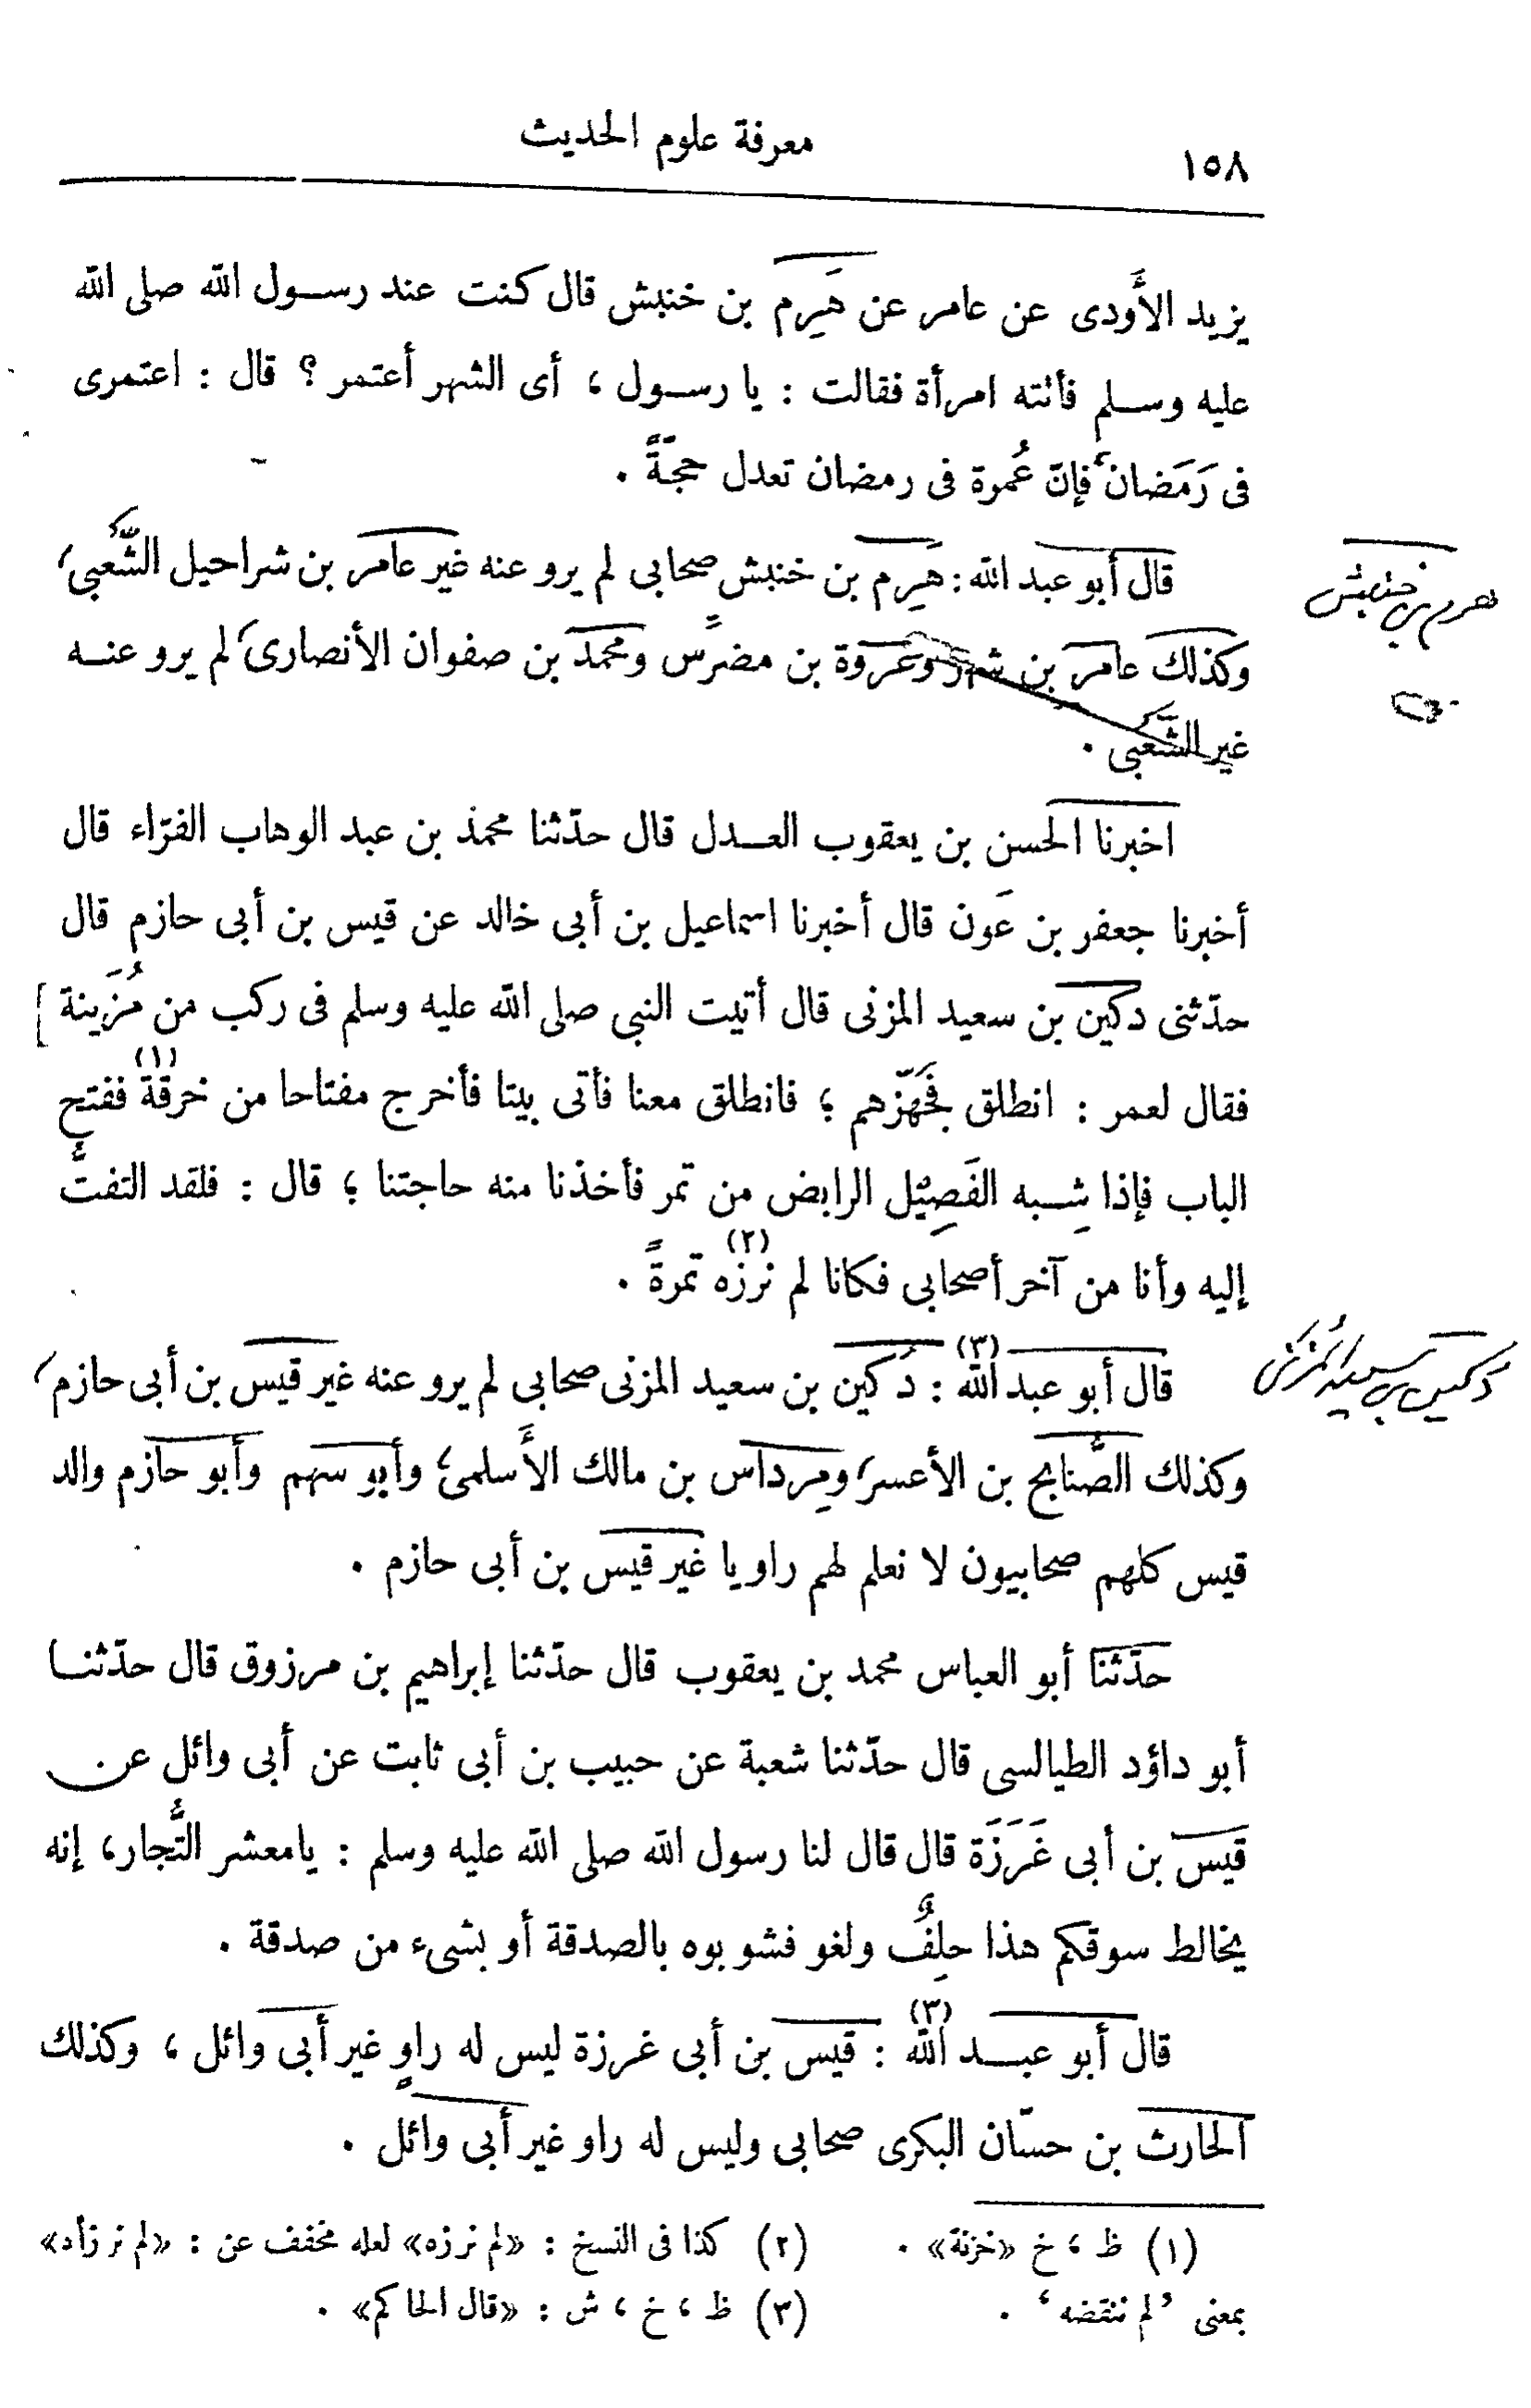 ١٥٨
معرفة علوم الحديث
يزيد الأَودى عن عامر عن هَرِم بن خنبش قال كنت عند رسول الله صلى الله
عليه وسلم فأتته امرأة فقالت : يا رسول ، أى الشهر أعتمر ؟ قال : اعتمرى
فى رَمَضان فإنّ عُمرة فى رمضان تعدل حجّةً .
قال أبو عبد الله : هَرِم بن خنبش صحابى لم يرو عنه غير عامر بن شراحيل الشَّعبي ،
وكذلك عامر بن شهر وعروة بن مضرّس ومحمد بن صفوان الأنصارى لم يرو عنه
غير الشَّعبى .
اخبرنا الحسن بن يعقوب العدل قال حدّثنا محمد بن عبد الوهاب الفرّاء قال
أخبرنا جعفر بن عَون قال أخبرنا اسماعيل بن أبى خالد عن قيس بن أبى حازم قال
حدّثنى دكين بن سعيد المزنى قال أتيت النبي صلى الله عليه وسلم فى ركب من مُزَينة ]
فقال لعمر : انطلق فَجَهّزهم ؛ فانطلق معنا فأتى بيتا فأخرج مفتاحا من خرقة (١) ففتح
الباب فإذا شِبه الفَصِيْل الرابض من تمر فأخذنا منه حاجتنا ؛ قال : فلقد التفتُّ
إليه وأنا من آخر أصحابى فكانا لم نرزه (٢) تمرةً .
قال أبو عبد الله (٣) : دُكين بن سعيد المزنى صحابى لم يرو عنه غير قيس بن أبى حازم ،
وكذلك الصُّنابح بن الأعسر ومِرداس بن مالك الأَسلمى ، وأبو سهم وأبو حازم والد
قيس كلهم صحابيون لا نعلم لهم راويا غير قيس بن أبى حازم .
حدّثنا أبو العباس محمد بن يعقوب قال حدّثنا إبراهيم بن مرزوق قال حدّثنا
أبو داؤد الطيالسى قال حدّثنا شعبة عن حبيب بن أبى ثابت عن أبى وائل عن
قيس بن أبى غَرَزَة قال قال لنا رسول الله صلى الله عليه وسلم : يا معشر التُّجار ، إنه
يخالط سوقكم هذا حلِفٌ ولغو فشوبوه بالصدقة أو بشىء من صدقة .
قال أبو عبد الله (٣) : قيس بن أبى غرزة ليس له راوٍ غير أبى وائل ، وكذلك
الحارث بن حسّان البكرى صحابى وليس له راو غير أبى وائل .
(١) ظ ، خ «خزنة» . (٢) كذا فى النسخ : «لم نرزه» لعله مخفف عن : «لم نرزأه»
بمعنى ’لم ننقضه‘ . (٣) ظ ، خ ، ش : «قال الحاكم» .
هرم بن خنبش
دكين بن سعيد المُزَنى